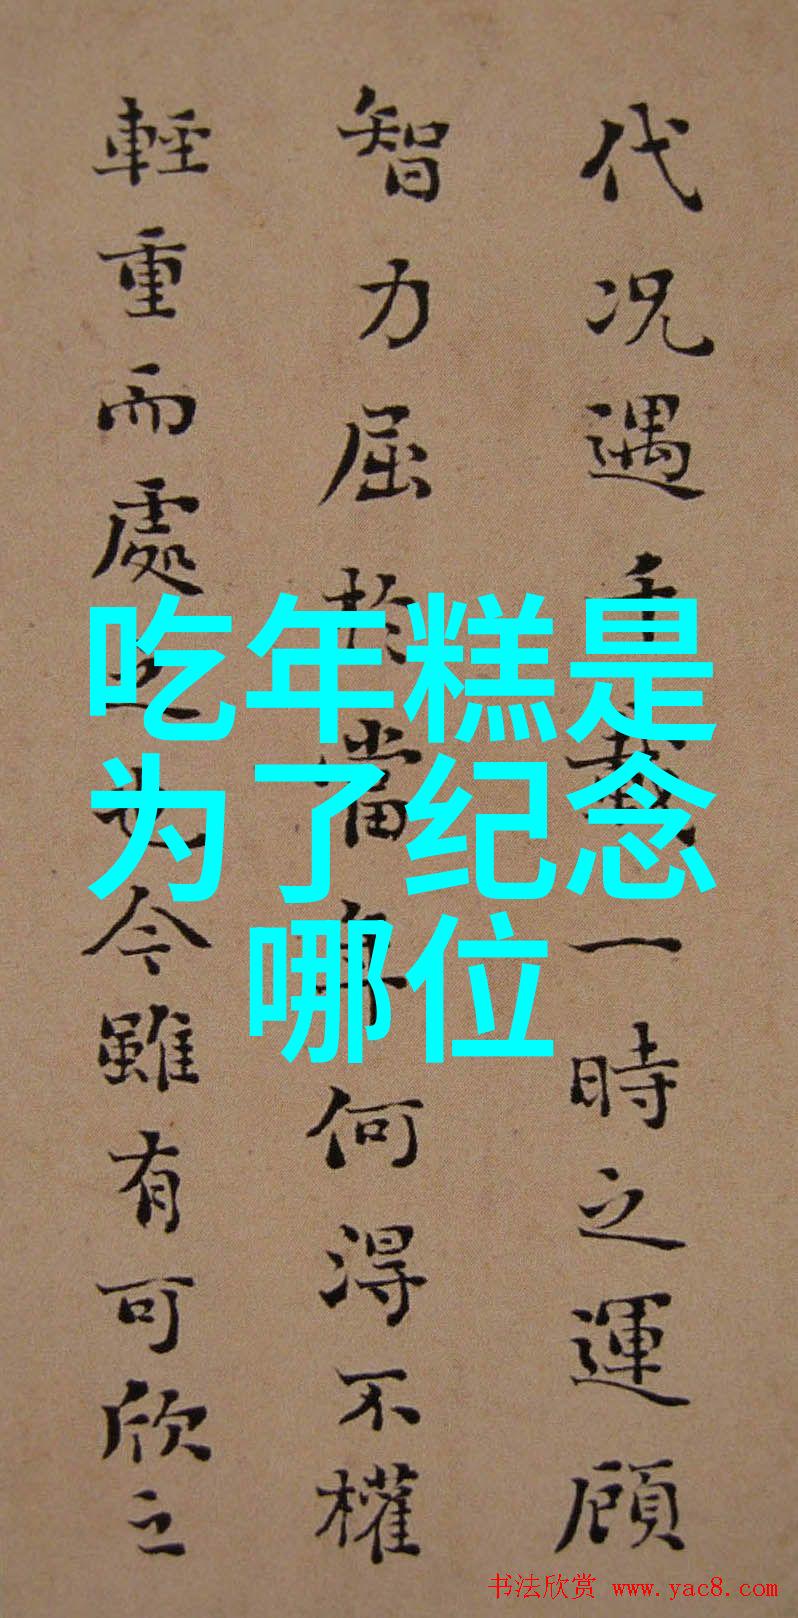 代况遇千載一時之運顧
智力屈於當年何得不權
輕重而處之也今雖有可欣之
吃年糕是
为了纪念
哪位
书法欣赏 www.yac8.com